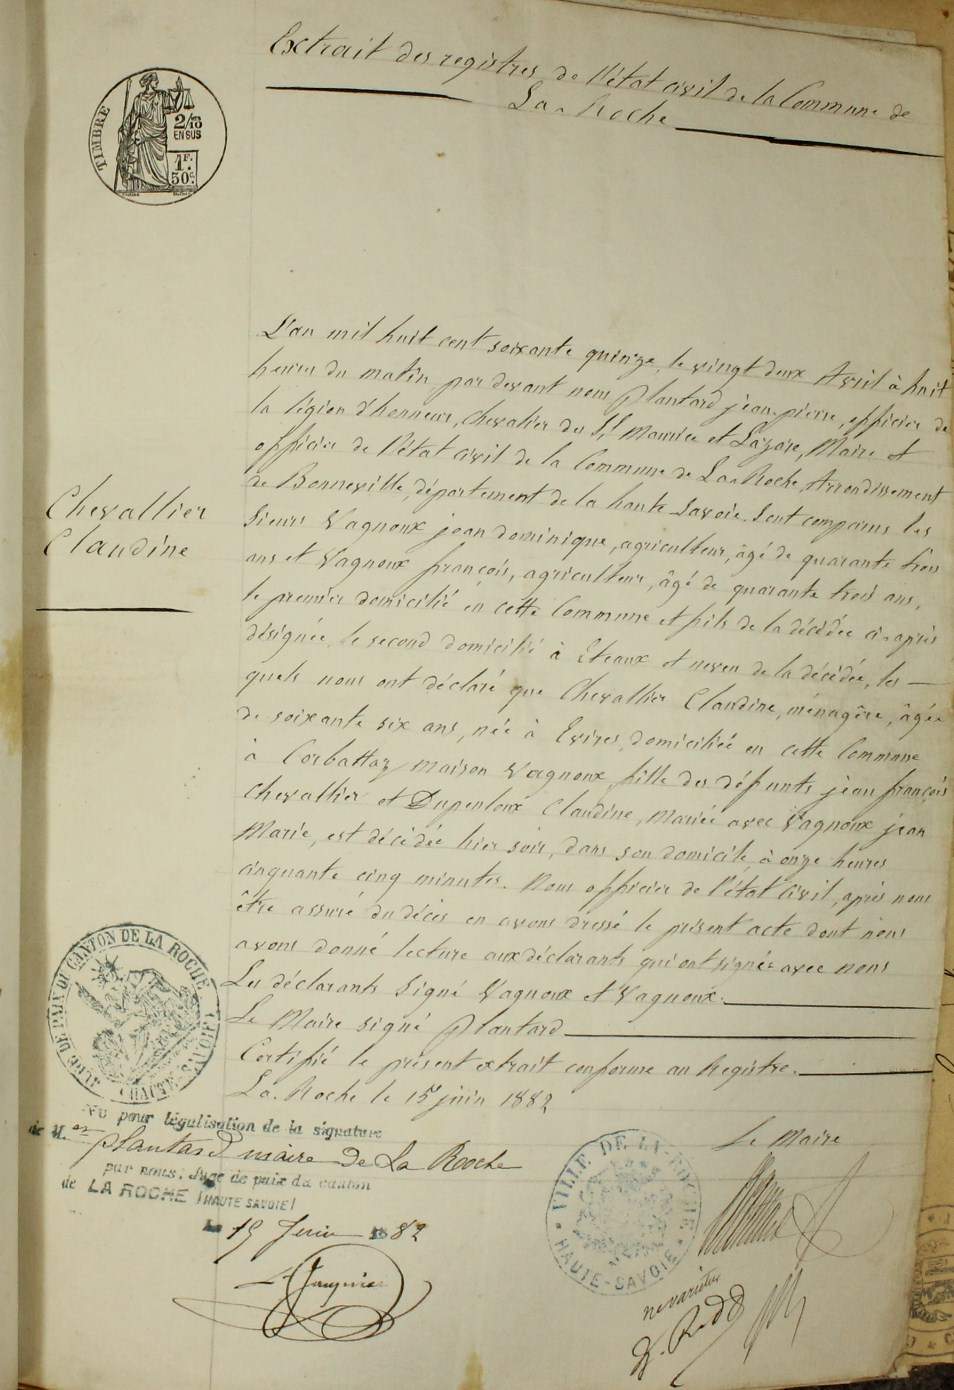 Extrait des registres de l'état civil de la Commune de
La Roche
TIMBRE
2/10
EN SUS
1F.
50c.
Chevallier
Claudine
L'an mil huit cent soixante quinze, le vingt deux Avril à huit
heures du matin, par devant nous Plantard jean-pierre, officier de
la légion d'honneur, Chevalier des Sts Maurice et Lazare, Maire et
officier de l'état civil de la Commune de La Roche, Arrondissement
de Bonneville, département de la haute-Savoie. Sont comparus les
Sieurs Vagnoux jean dominique, agriculteur, âgé de quarante trois
ans et Vagnoux françois, agriculteur, âgé de quarante trois ans,
le premier domicilié en cette Commune et fils de la décédée ci-après
désignée, le second domicilié à Eteaux et neveu de la décédée, les
quels nous ont déclaré que Chevallier Claudine, ménagère, âgée
de soixante six ans, née à Evires, domiciliée en cette Commune
à Corbattaz, maison Vagnoux, fille des défunts jean françois
Chevallier et Dupenloux Claudine, Mariée avec Vagnoux jean
Marie, est décédée hier soir, dans son domicile, à onze heures
cinquante cinq minutes. Nous officier de l'état civil, après nous
être assuré du décès en avons dressé le présent acte dont nous
avons donné lecture aux déclarants qui ont signés avec nous
Les déclarants Signé Vagnoux et Vagnoux.
Le Maire signé Plantard
Certifié le présent extrait conforme au Registre.
La Roche le 15 juin 1882
JUGE DE PAIX DU CANTON DE LA ROCHE (HAUTE-SAVOIE)
Vu pour légalisation de la signature
de M. plantard maire de La Roche
par nous: Juge de paix du canton
de LA ROCHE (HAUTE SAVOIE)
Le 15 Juin 1882
VILLE DE LA-ROCHE
HAUTE-SAVOIE
Le Maire
ne varietur